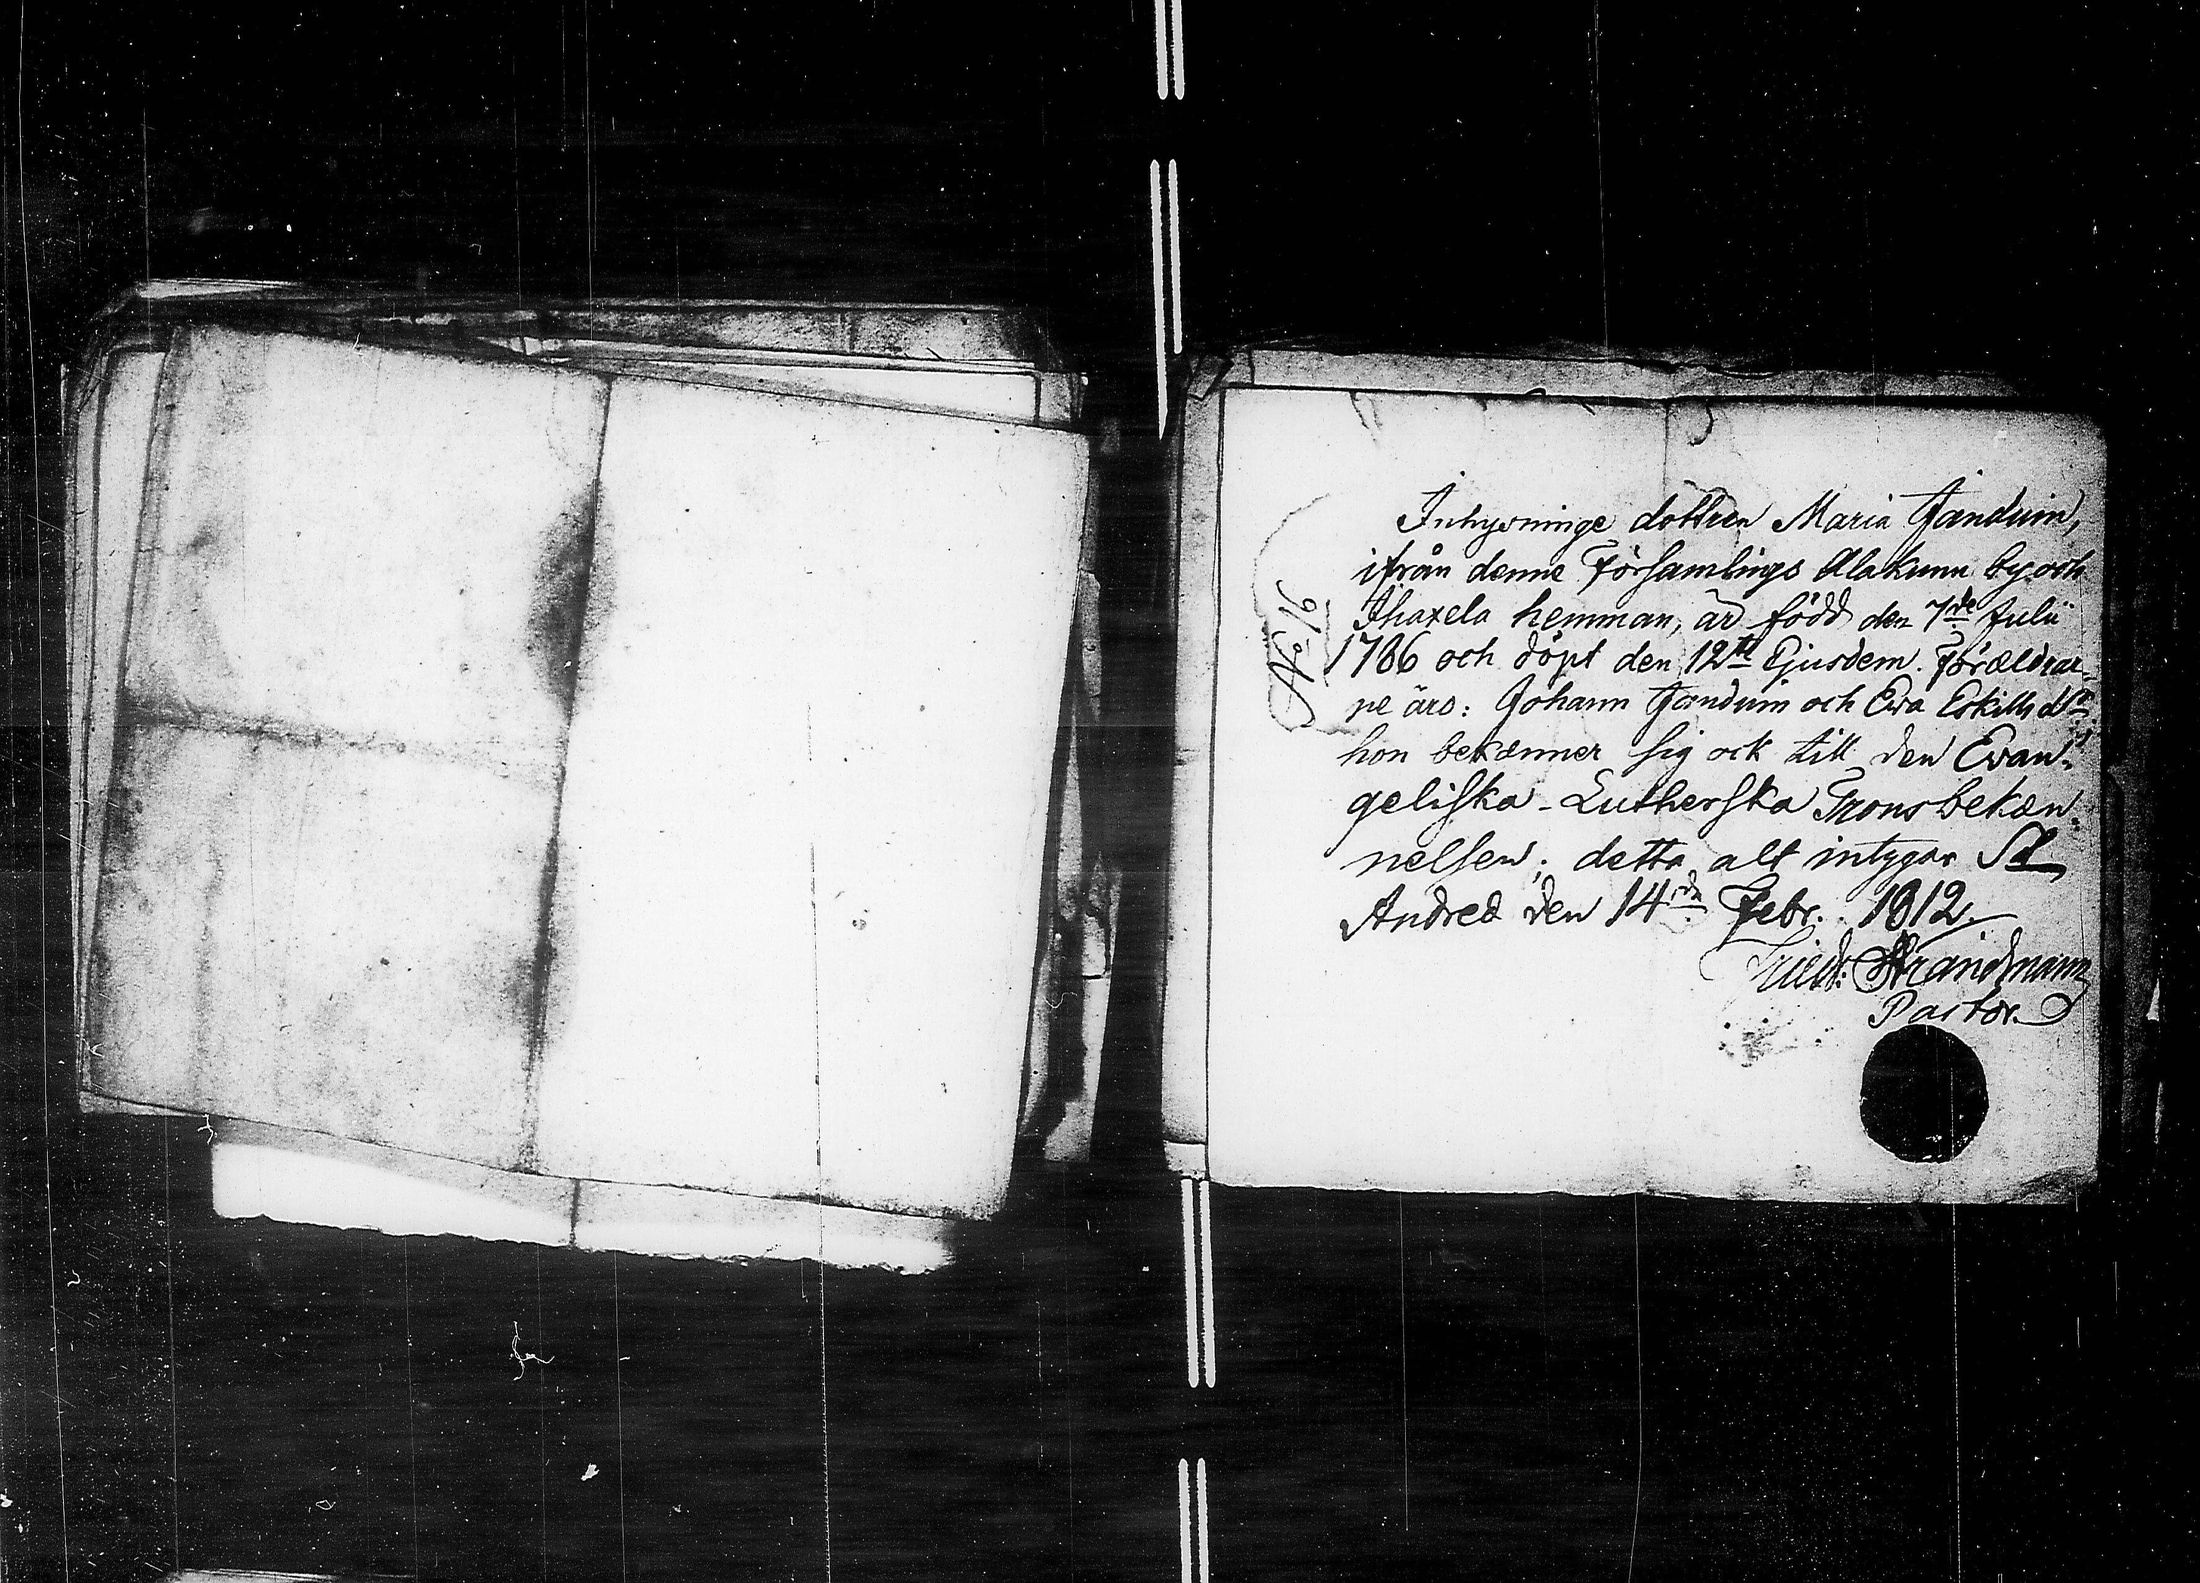 No 16
Inhysninge dottren Maria Janduin,
ifrån denne Församlings Alakunn by och
Ihaxela hemman, är född den 7de Julii
1786 och döpt den 12te Ejusdem. Föræld̈rar-
ne äro: Johann Janduin och Eva Eskills dr
hon bekænner sig ock till den Evan-
geliska-Lutherska Trons bekæn-
nelsen; detta alt intygar St
Andreæ den 14de Febr. 1812.
Friedr: Strandmann
Pastor.